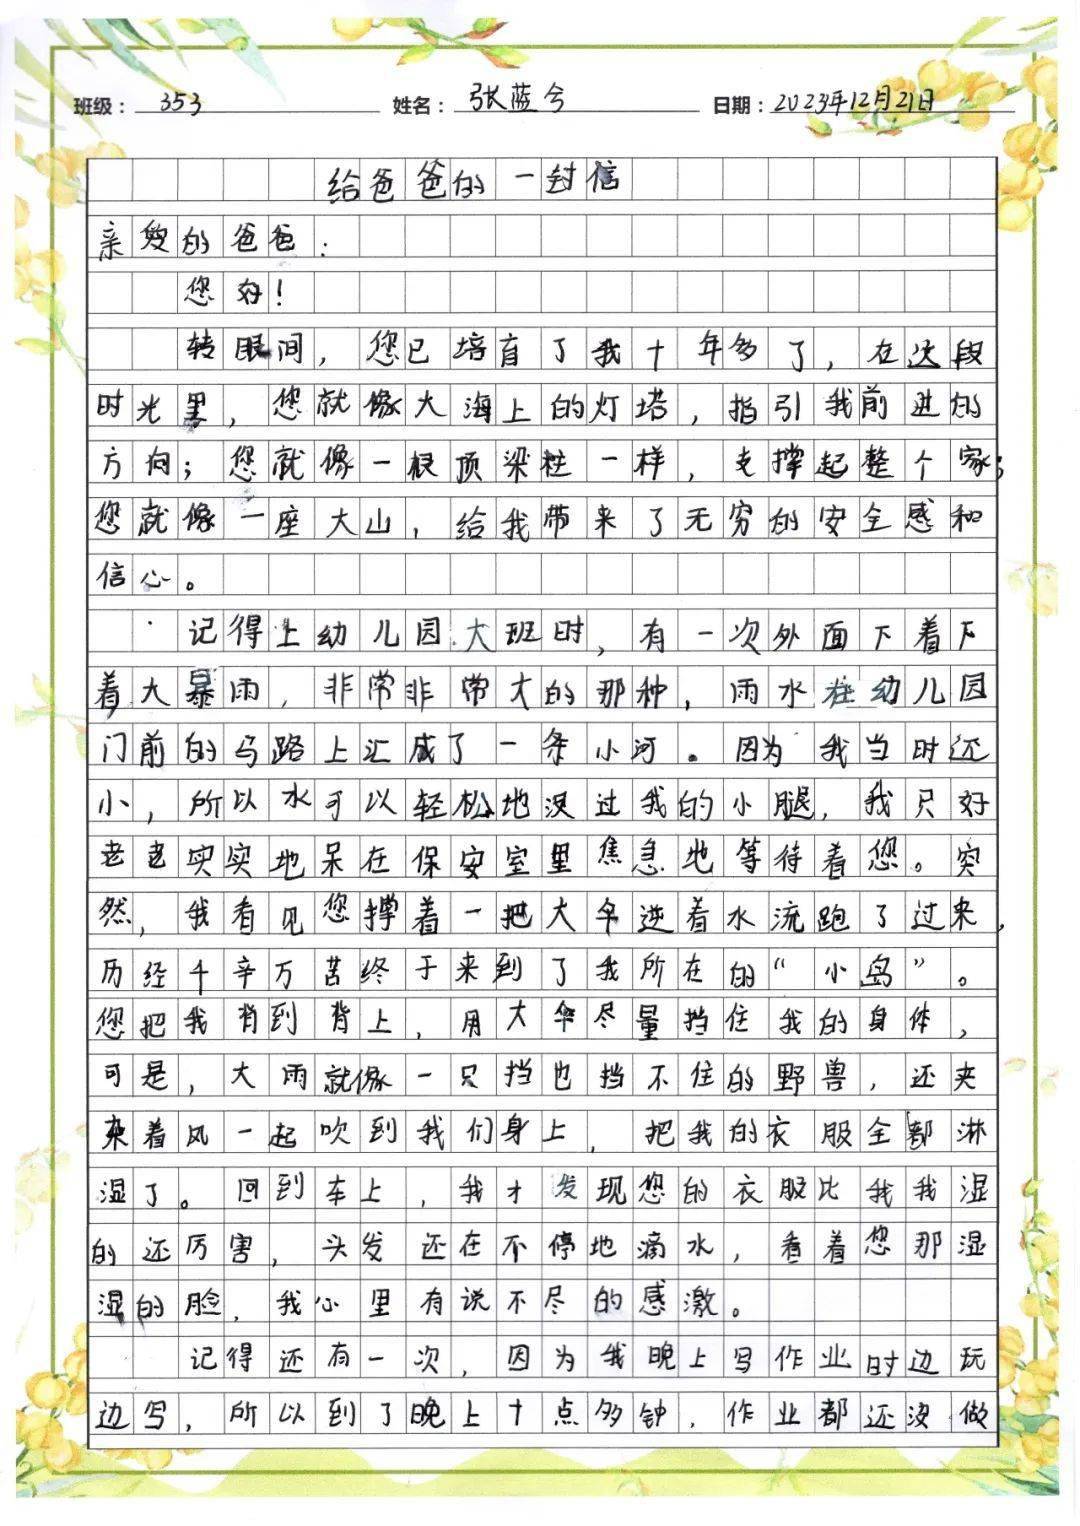 班级： 353 姓名： 张蓝兮 日期： 2023年12月21日
给爸爸的一封信
亲爱的爸爸：
您好！
转眼间，您已培育了我十年多了，在这段
时光里，您就像大海上的灯塔，指引我前进的
方向；您就像一根顶梁柱一样，支撑起整个家；
您就像一座大山，给我带来了无穷的安全感和
信心。
记得上幼儿园大班时，有一次外面下着下
着大暴雨，非常非常大的那种，雨水在幼儿园
门前的马路上汇成了一条小河。因为我当时还
小，所以水可以轻松地没过我的小腿，我只好
老老实实地呆在保安室里焦急地等待着您。突
然，我看见您撑着一把大伞逆着水流跑了过来，
历经千辛万苦终于来到了我所在的“小岛”。
您把我背到背上，用大伞尽量挡住我的身体，
可是，大雨就像一只挡也挡不住的野兽，还夹
杂着风一起吹到我们身上，把我的衣服全部淋
湿了。回到车上，我才发现您的衣服比我我湿
的还厉害，头发还在不停地滴水，看着您那湿
湿的脸，我心里有说不尽的感激。
记得还有一次，因为我晚上写作业时边玩
边写，所以到了晚上十点多钟，作业都还没做